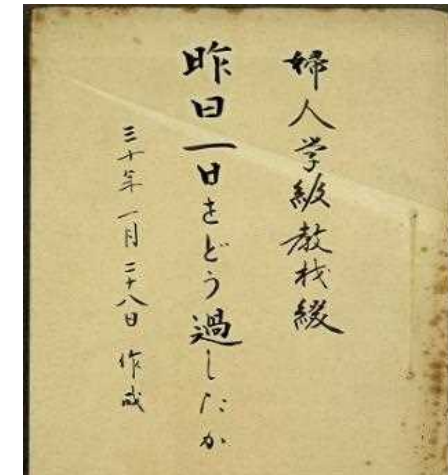 婦人学級教材綴
昨日一日をどう過したか
三十年一月二十八日 作成